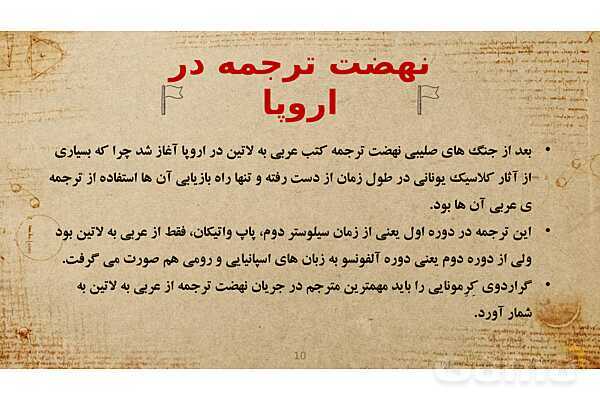 نهضت ترجمه در
اروپا
• بعد از جنگ های صلیبی نهضت ترجمه کتب عربی به لاتین در اروپا آغاز شد چرا که بسیاری
از آثار کلاسیک یونانی در طول زمان از دست رفته و تنها راه بازیابی آن ها استفاده از ترجمه
ی عربی آن ها بود.
• این ترجمه در دوره اول یعنی از زمان سیلوستر دوم، پاپ واتیکان، فقط از عربی به لاتین بود
ولی از دوره دوم یعنی دوره آلفونسو به زبان های اسپانیایی و رومی هم صورت می گرفت.
• گراردوی کرِمونایی را باید مهمترین مترجم در جریان نهضت ترجمه از عربی به لاتین به
شمار آورد.
10